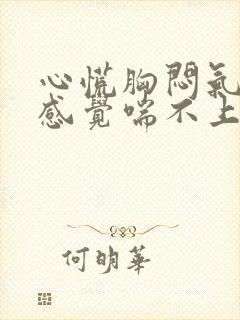 心慌胸悶氣
感覺喘不上
何明華